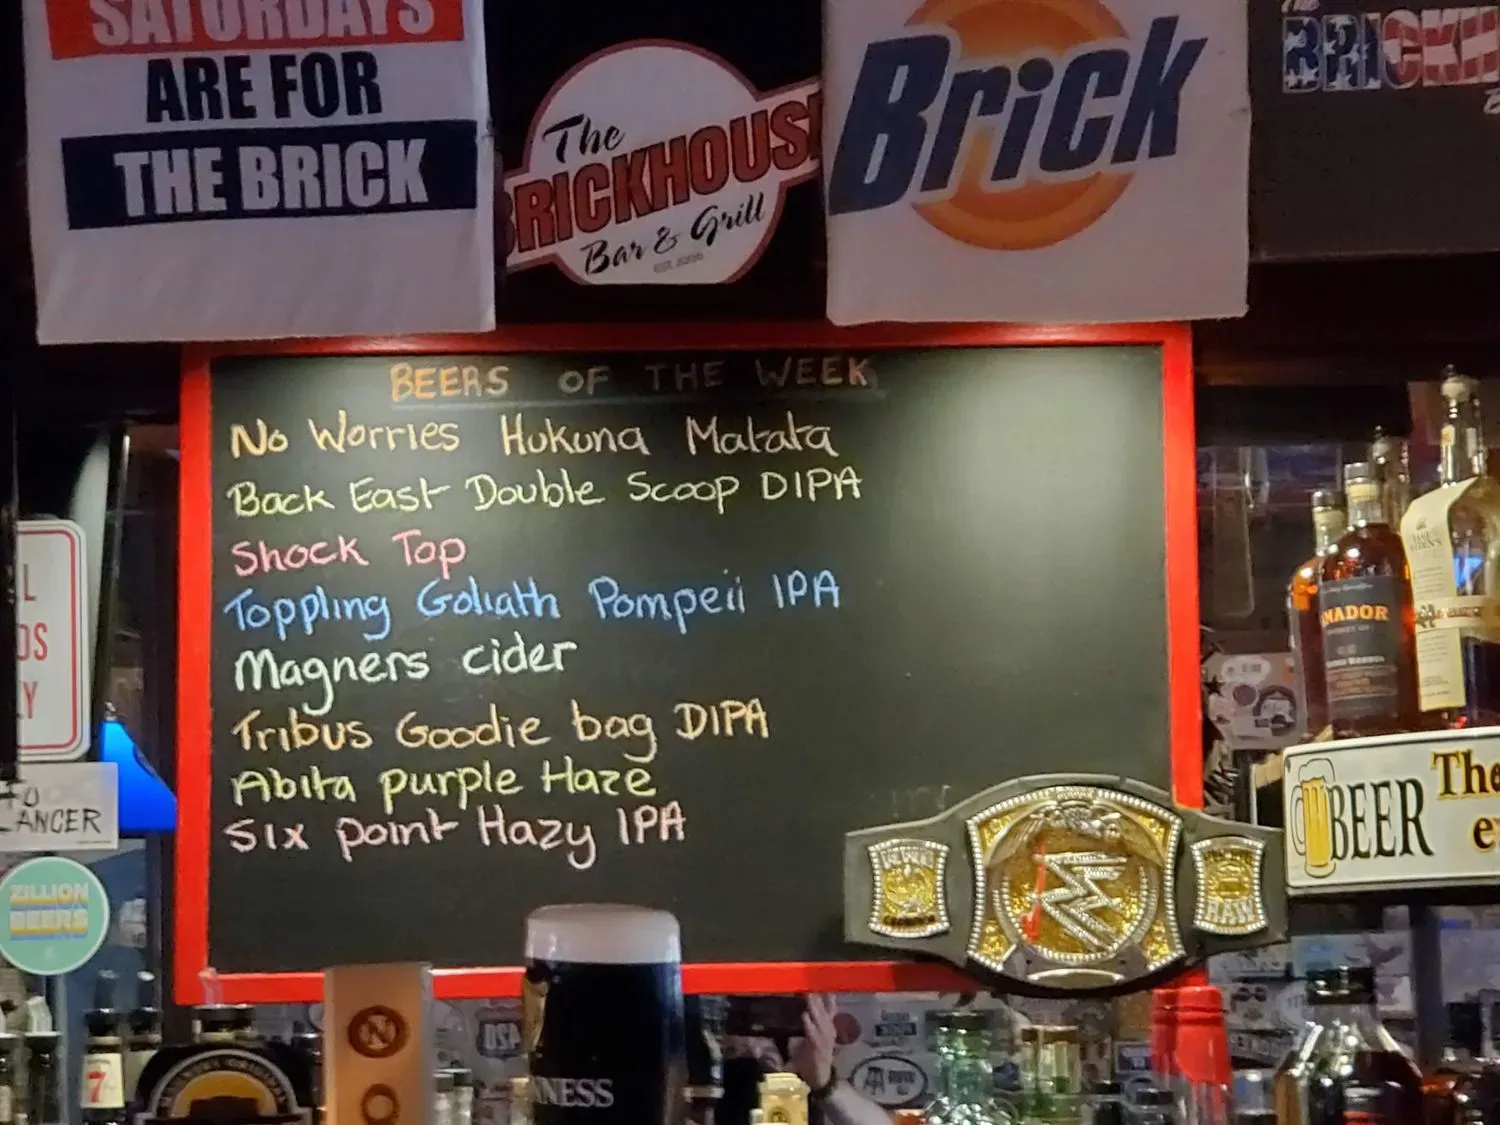 SATURDAYS
ARE FOR
THE BRICK
The
BRICKHOUSE
Bar & Grill
EST.
Brick
The
BRICKH
BEERS OF THE WEEK
No Worries Hukuna Matata
Back East Double Scoop DIPA
Shock Top
Toppling Goliath Pompeii IPA
Magners cider
Tribus Goodie bag DIPA
Abita purple Haze
Six point Hazy IPA
L
DS
LY
ANCER
ZILLION
BEERS
MADOR
BEER The
e
W
RAW
N
7
NNESS